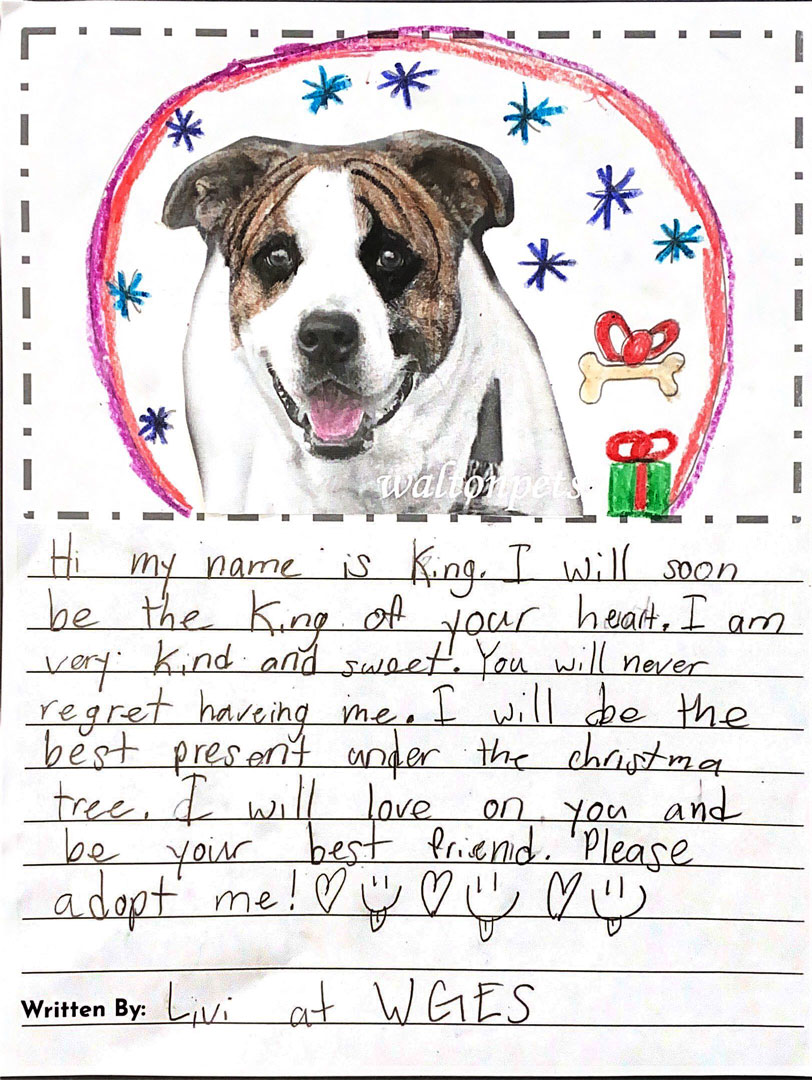 waltonpets
Hi my name is King. I will soon
be the King of your heart. I am
very kind and sweet. You will never
regret haveing me. I will be the
best present under the christma
tree. I will love on you and
be yoiur best friend. Please
adopt me!
Written By: Livi at WGES